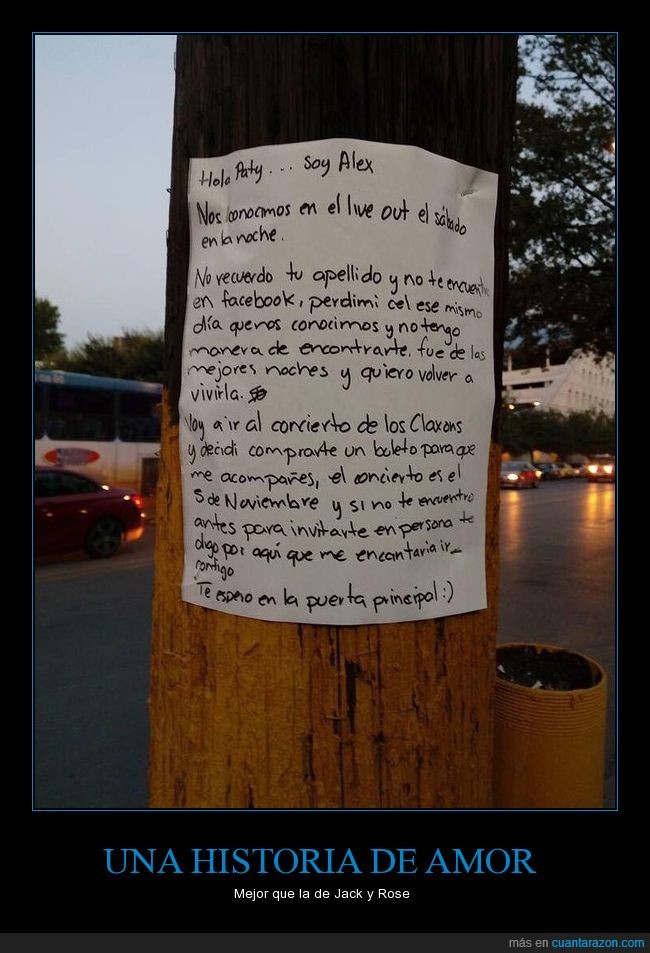 Hola Paty... soy Alex
Nos conocimos en el live out el sábado
en la noche.
No recuerdo tu apellido y no te encuentro
en facebook, perdi mi cel ese mismo
día que nos conocimos y no tengo
manera de encontrarte, fue de las
mejores noches y quiero volver a
vivirla.
Voy a ir al concierto de los Claxons
y decidi comprarte un boleto para que
me acompañes, el concierto es el
5 de Noviembre y si no te encuentro
antes para invitarte en persona te
digo por aquí que me encantaria ir
contigo
Te espero en la puerta principal :)
UNA HISTORIA DE AMOR
Mejor que la de Jack y Rose
más en cuantarazon.com